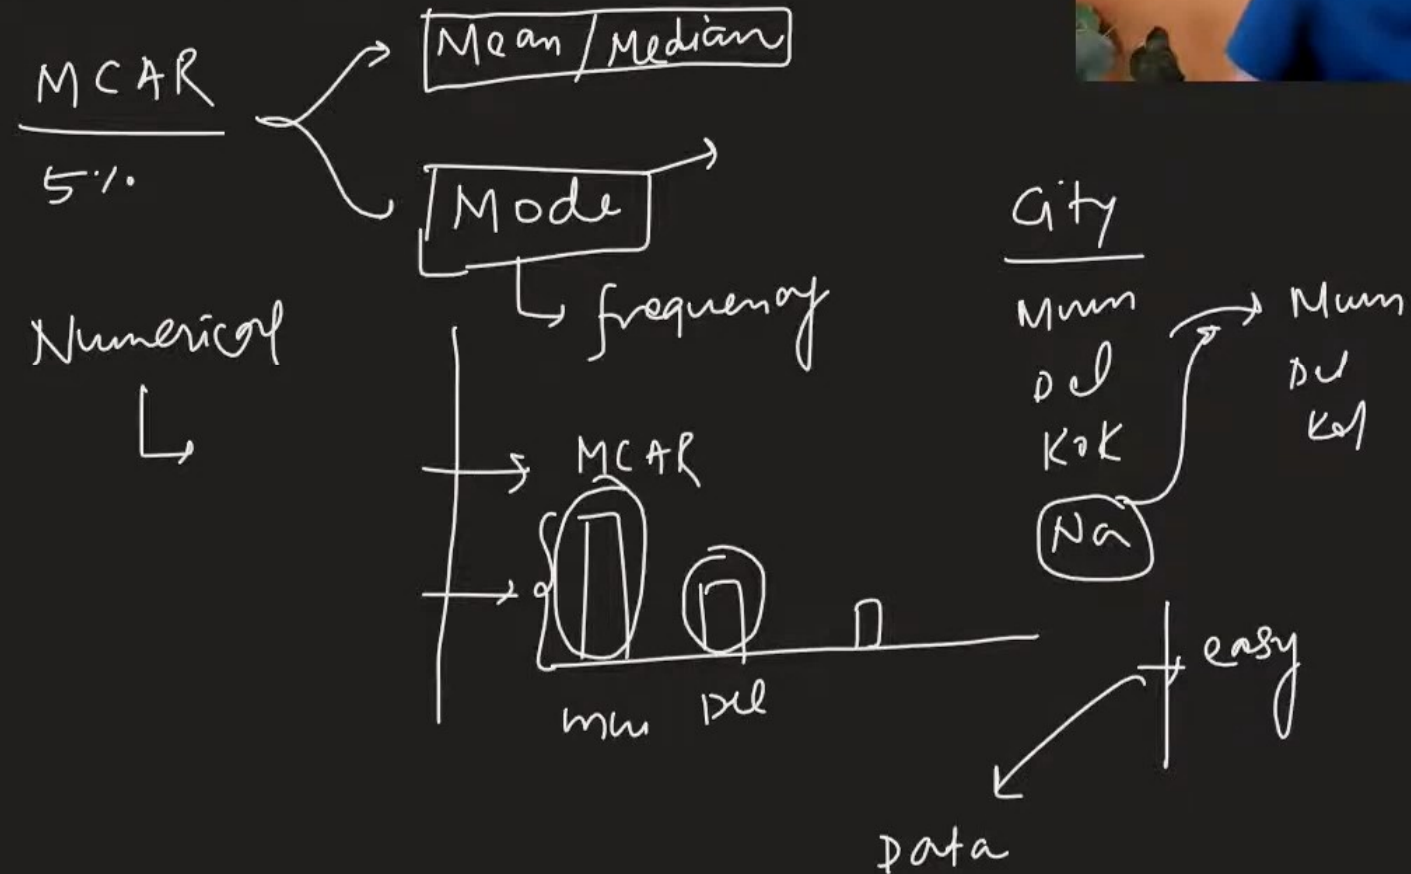 MCAR
5%
Mean / Median
Mode
frequency
Numerical
MCAR
Mum
Del
City
Mum
Del
Kok
Na
Mum
Del
Kol
easy
Data